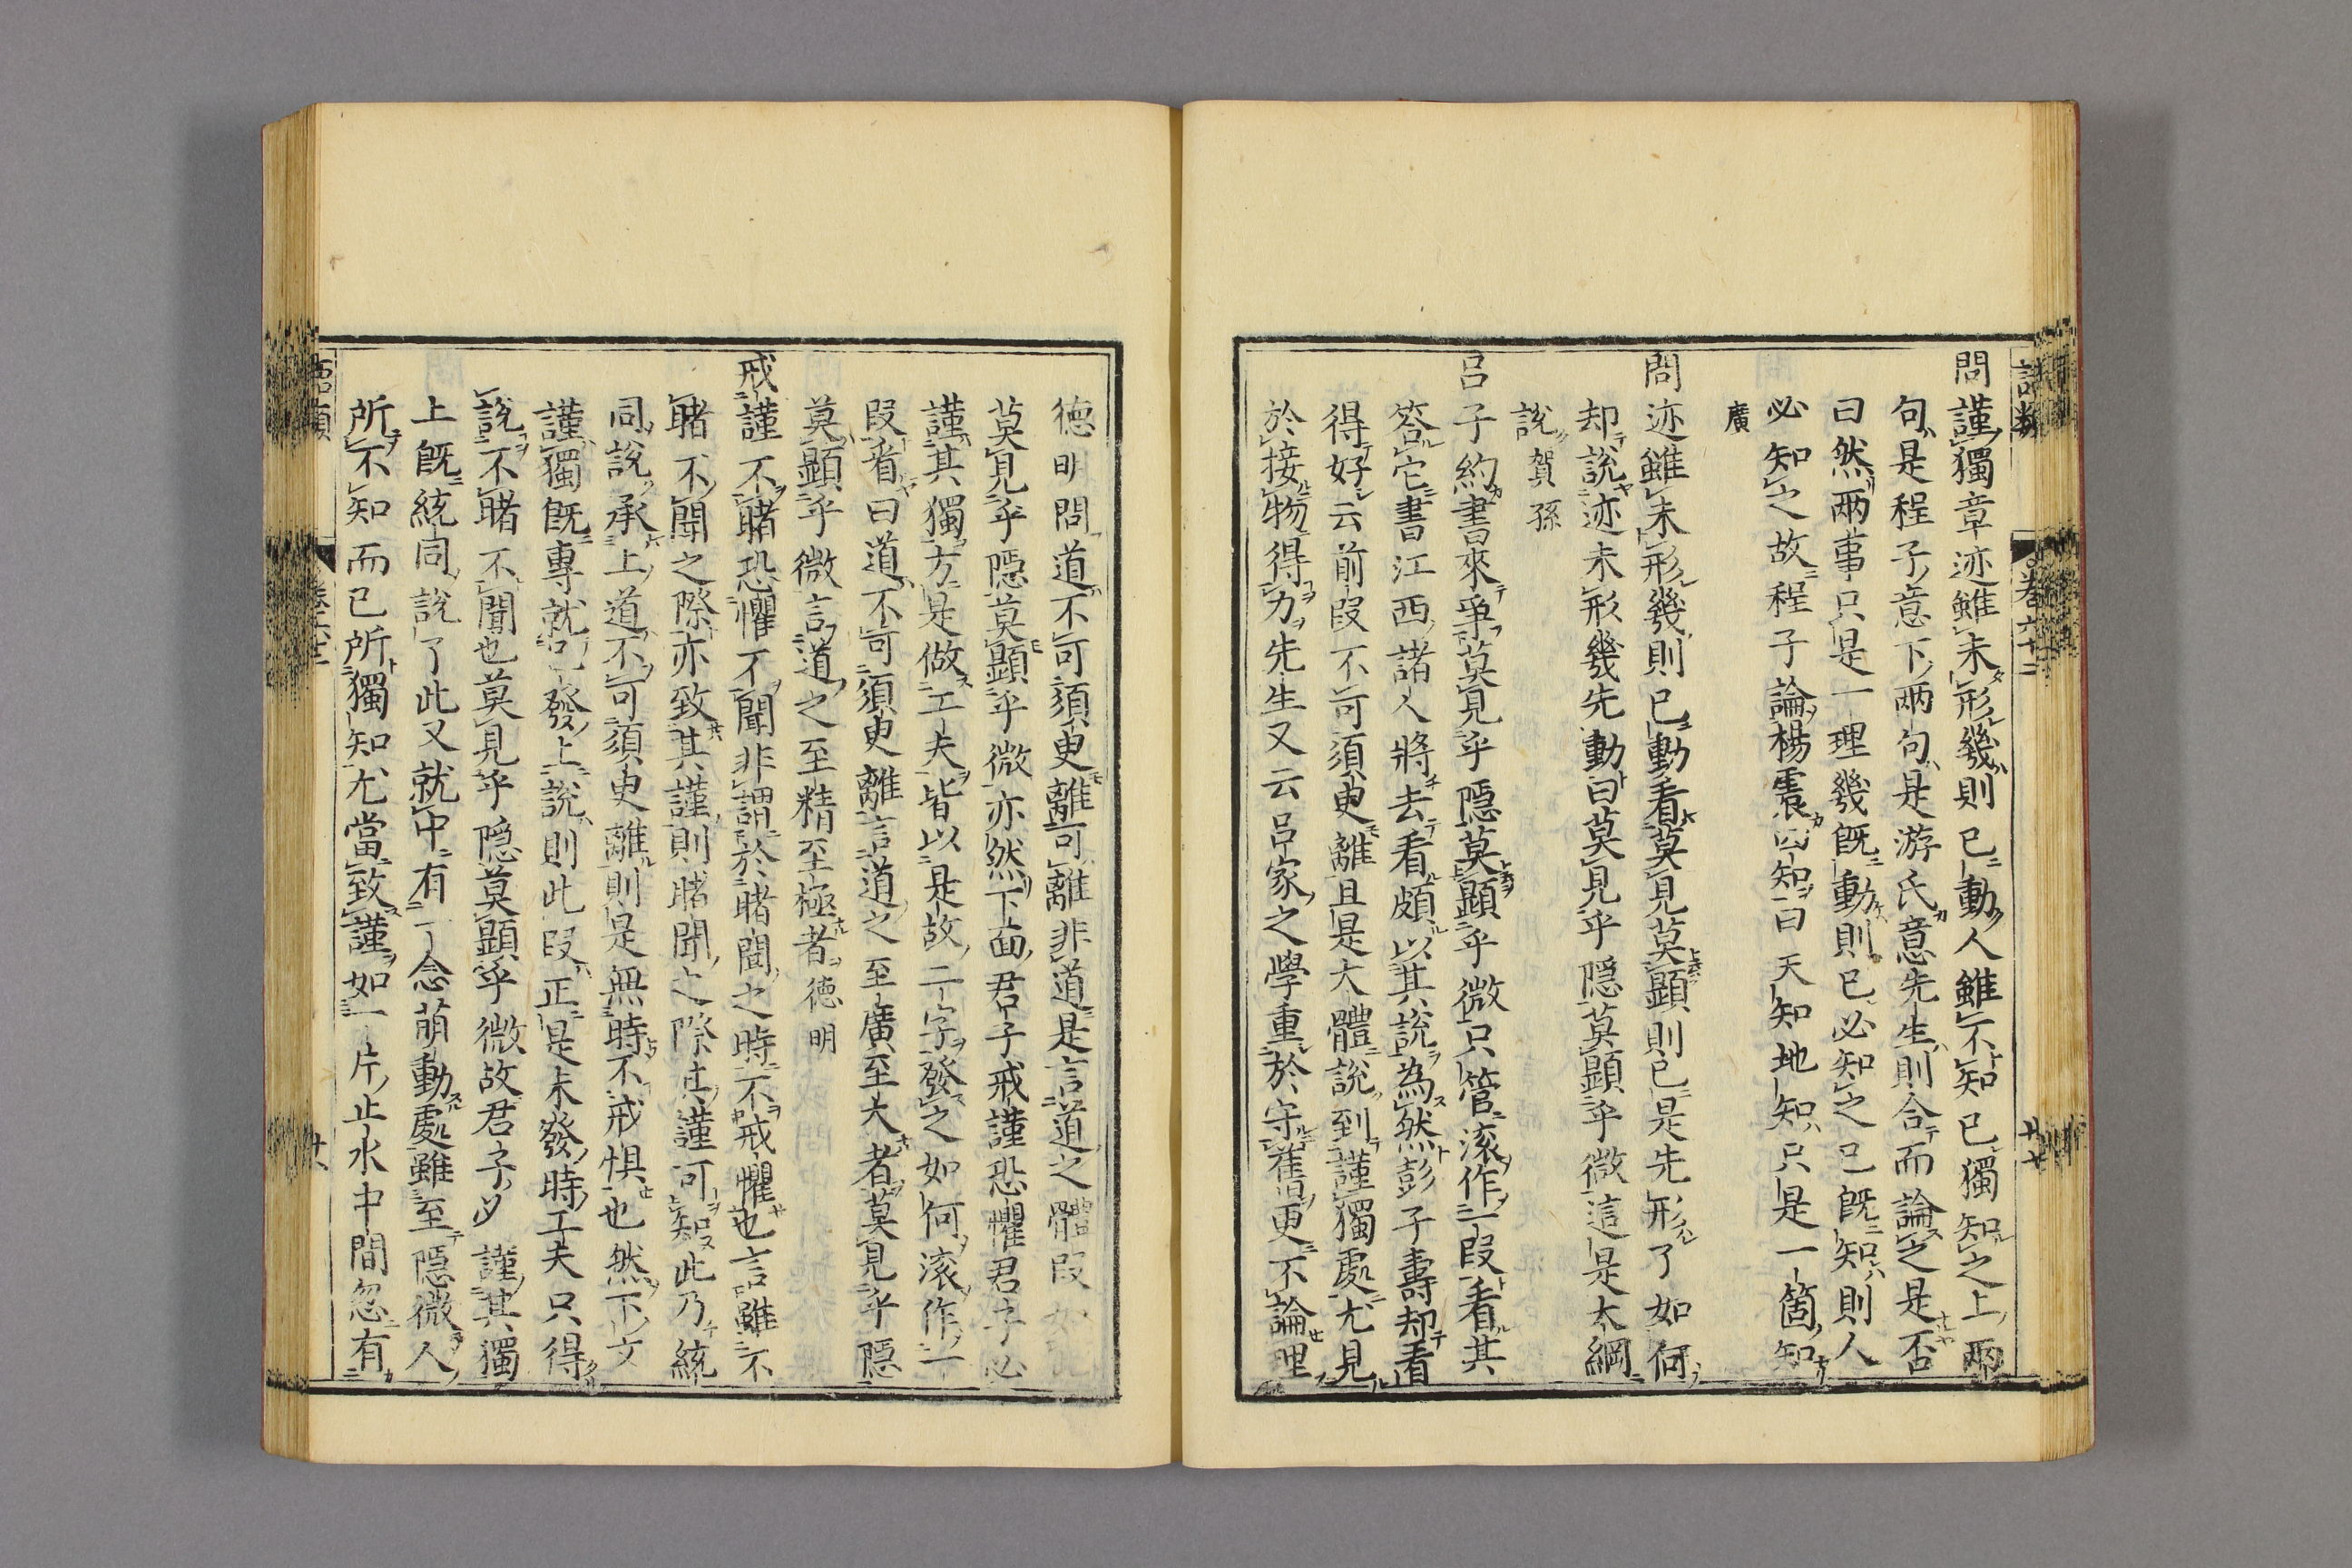 語類 卷六十二 廿七
問謹獨章迹雖未形幾則已動人雖不知已獨知之上兩
句是程子意下兩句是游氏意先生則合而論之是否
曰然兩事只是一理幾旣動則已必知之已旣知則人
必知之故程子論楊震四知曰天知地知只是一箇知
廣
問迹雖未形幾則已動看莫見莫顯則已是先形了如何
却說迹未形幾先動曰莫見乎隱莫顯乎微這是大綱
說賀孫
呂子約書來爭莫見乎隱莫顯乎微只管滚作一段看某
答它書江西諸人將去看頗以其說為然彭子壽却看
得好云前段不可須臾離且是大體說到謹獨處尤見
於接物得力先生又云呂家之學重於守舊更不論理
德明問道不可須臾離可離非道是言道之體段如此
莫見乎隱莫顯乎微亦然下面君子戒謹恐懼君子必
謹其獨方是做工夫皆以是故二字發之如何滚作一
段看曰道不可須臾離言道之至廣至大者莫見乎隱
莫顯乎微言道之至精至極者德明
戒謹不睹恐懼不聞非謂於睹聞之時不戒懼也言雖不
睹不聞之際亦致其謹則睹聞之際其謹可知此乃統
同說承上道不可須臾離則是無時不戒惧也然下文
謹獨旣專就已發上說則此段正是未發時工夫只得
說不睹不聞也莫見乎隱莫顯乎微故君子必謹其獨
上旣統同說了此又就中有一念萌動處雖至隱微人
所不知而已所獨知尤當致謹如一片止水中間忽有
語類 卷六十二 廿八